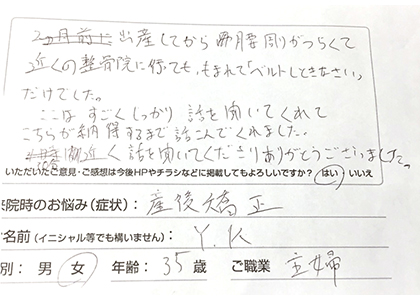 2ヵ月前に出産してから腰痛がつらくて
近くの整骨院に行っても、もまれて「ベルトしときなさい」
だけでした。
ここはすごくしっかり話を聞いてくれて
こちらが納得するまで話こんでくれました。
近く話を聞いてくださりありがとうございました。
いただいたご意見・ご感想は今後HPやチラシなどに掲載してもよろしいですか? はい いいえ
院時のお悩み(症状): 産後矯正
名前(イニシャル等でも構いません): Y.K
別: 男 女 年齢: 35歳 ご職業 主婦